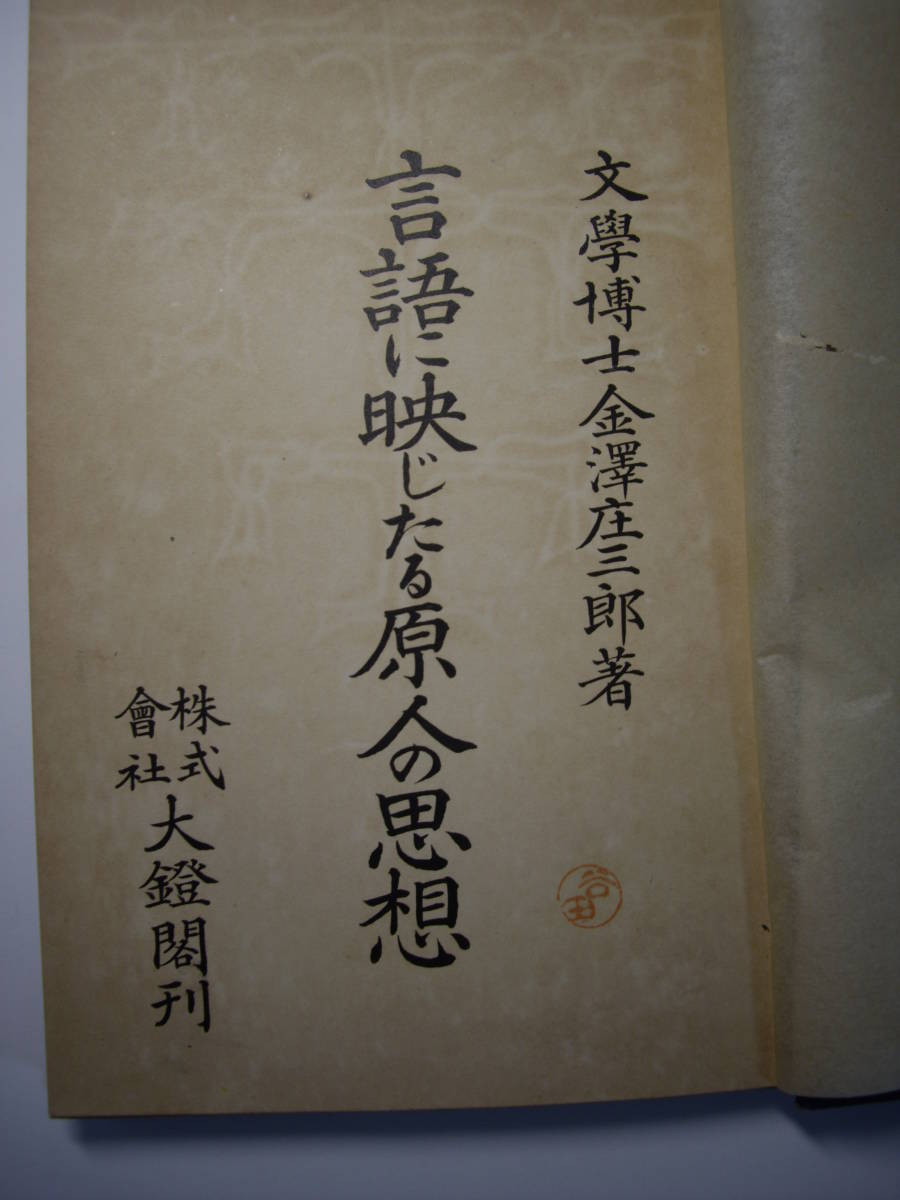 文學博士金澤庄三郎著
言語に映じたる原人の思想
株式會社大鐙閣刊
谷田